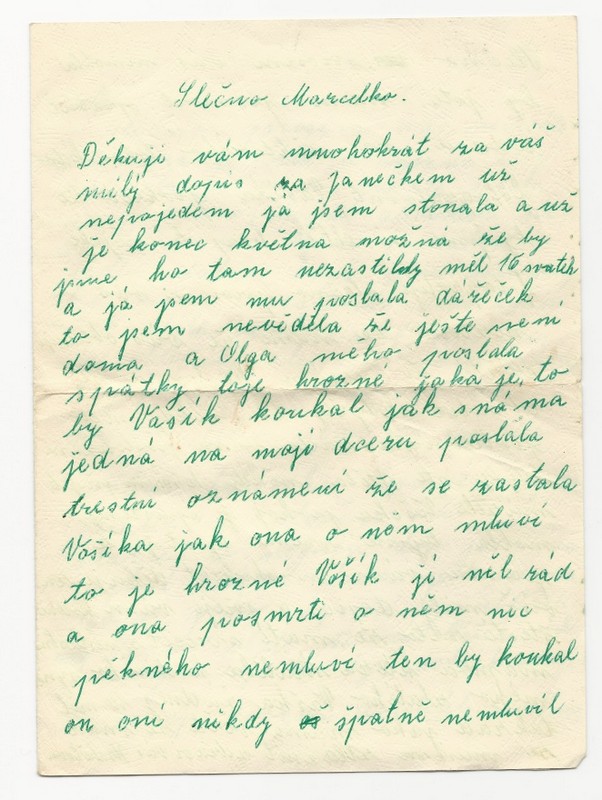 Slečno Marcelko.
Děkuji vám mnohokrát za váš
milý dopis za Janečkem už
nepojedem já jsem stonala a už
je konec května možná že by
jsme ho tam nezastihly měl 16 svatek
a já jsem mu poslala dáreček
to jsem nevěděla že ješte neni
doma a Olga mého poslala
spátky toje hrozné jaká je, to
by Vašík koukal jak snáma
jedná na moji dceru poslala
trestni oznámeni že se zastala
Vašíka jak ona o něm mluvi
to je hrozné Vašík ji něl rád
a ona posmrti o něm nic
pěkného nemluvi ten by koukal
on oni nikdy špatně nemluvil